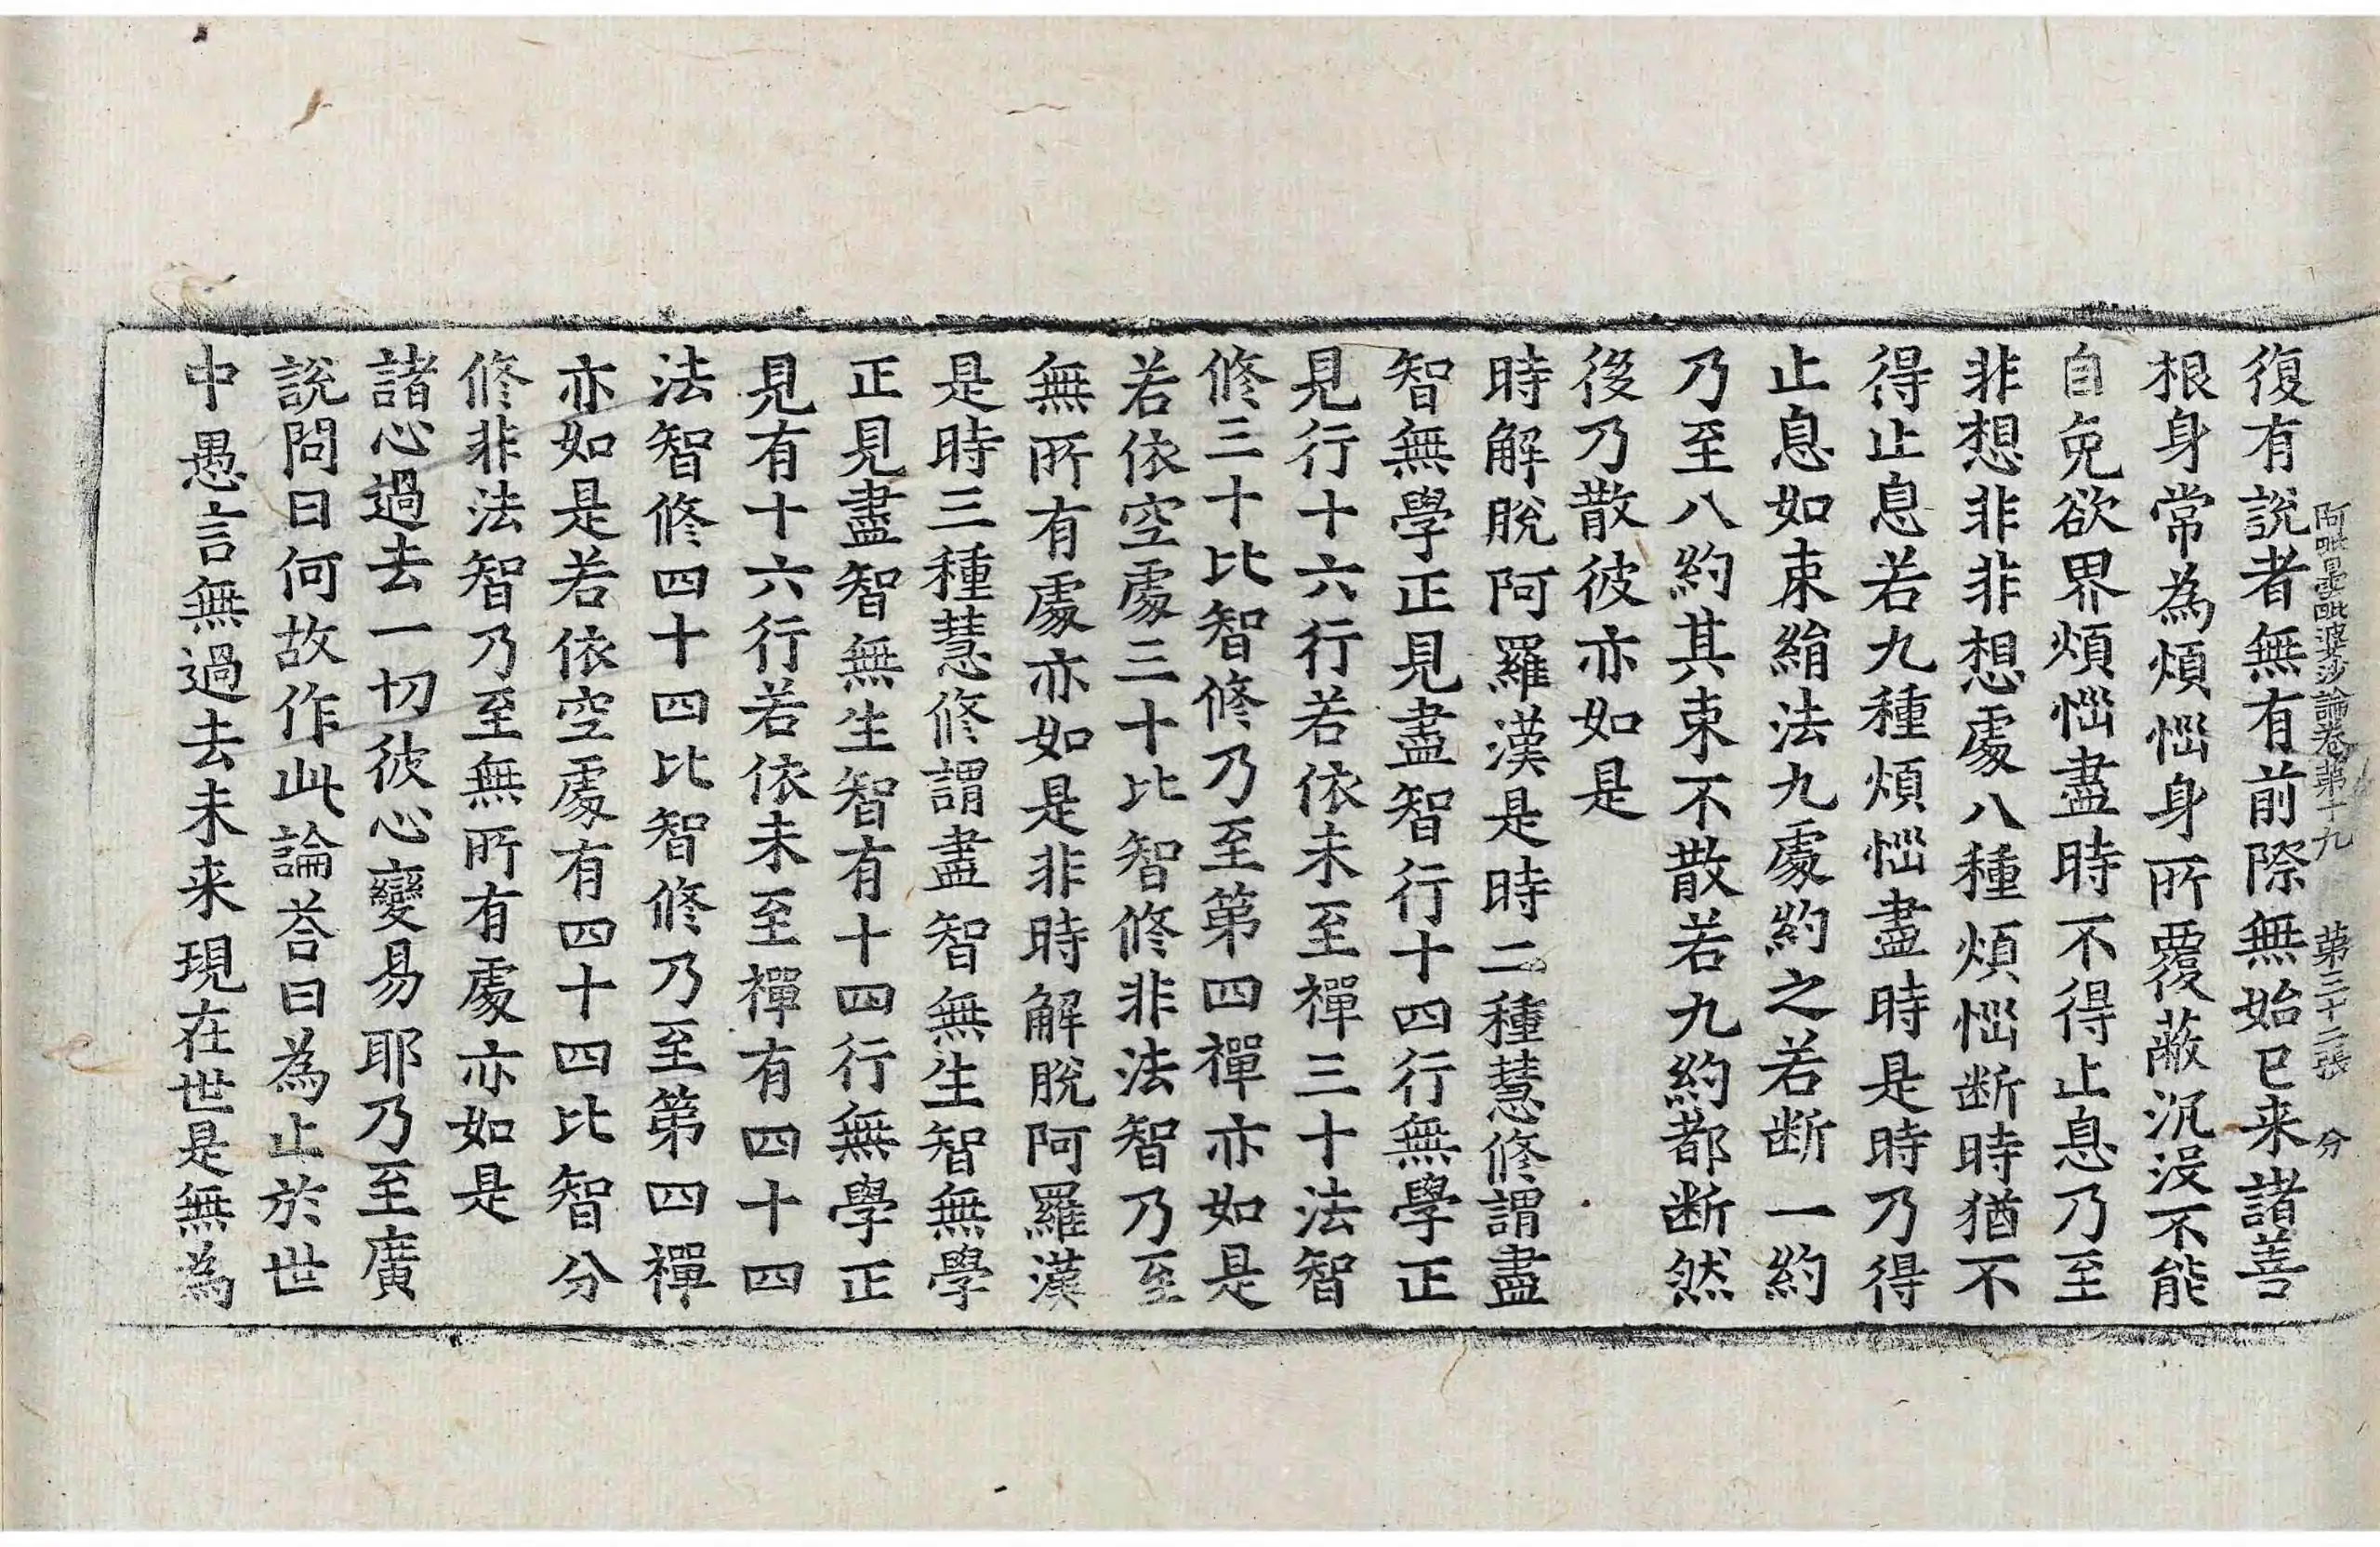 阿毗曇毗婆沙論卷第十九　第三十二張　分
復有說者無有前際無始已来諸善
根身常為煩惱身所覆蔽沉沒不能
自免欲界煩惱盡時不得止息乃至
非想非非想處八種煩惱断時猶不
得止息若九種煩惱盡時是時乃得
止息如束絹法九處約之若断一約
乃至八約其束不散若九約都断然
後乃散彼亦如是
時解脫阿羅漢是時二種慧修謂盡
智無學正見盡智行十四行無學正
見行十六行若依未至禪三十法智
修三十比智修乃至第四禪亦如是
若依空處三十比智修非法智乃至
無所有處亦如是非時解脫阿羅漢
是時三種慧修謂盡智無生智無學
正見盡智無生智有十四行無學正
見有十六行若依未至禪有四十四
法智修四十四比智修乃至第四禪
亦如是若依空處有四十四比智分
修非法智乃至無所有處亦如是
諸心過去一切彼心變易耶乃至廣
說問曰何故作此論荅曰為止於世
中愚言無過去未来現在世是無為